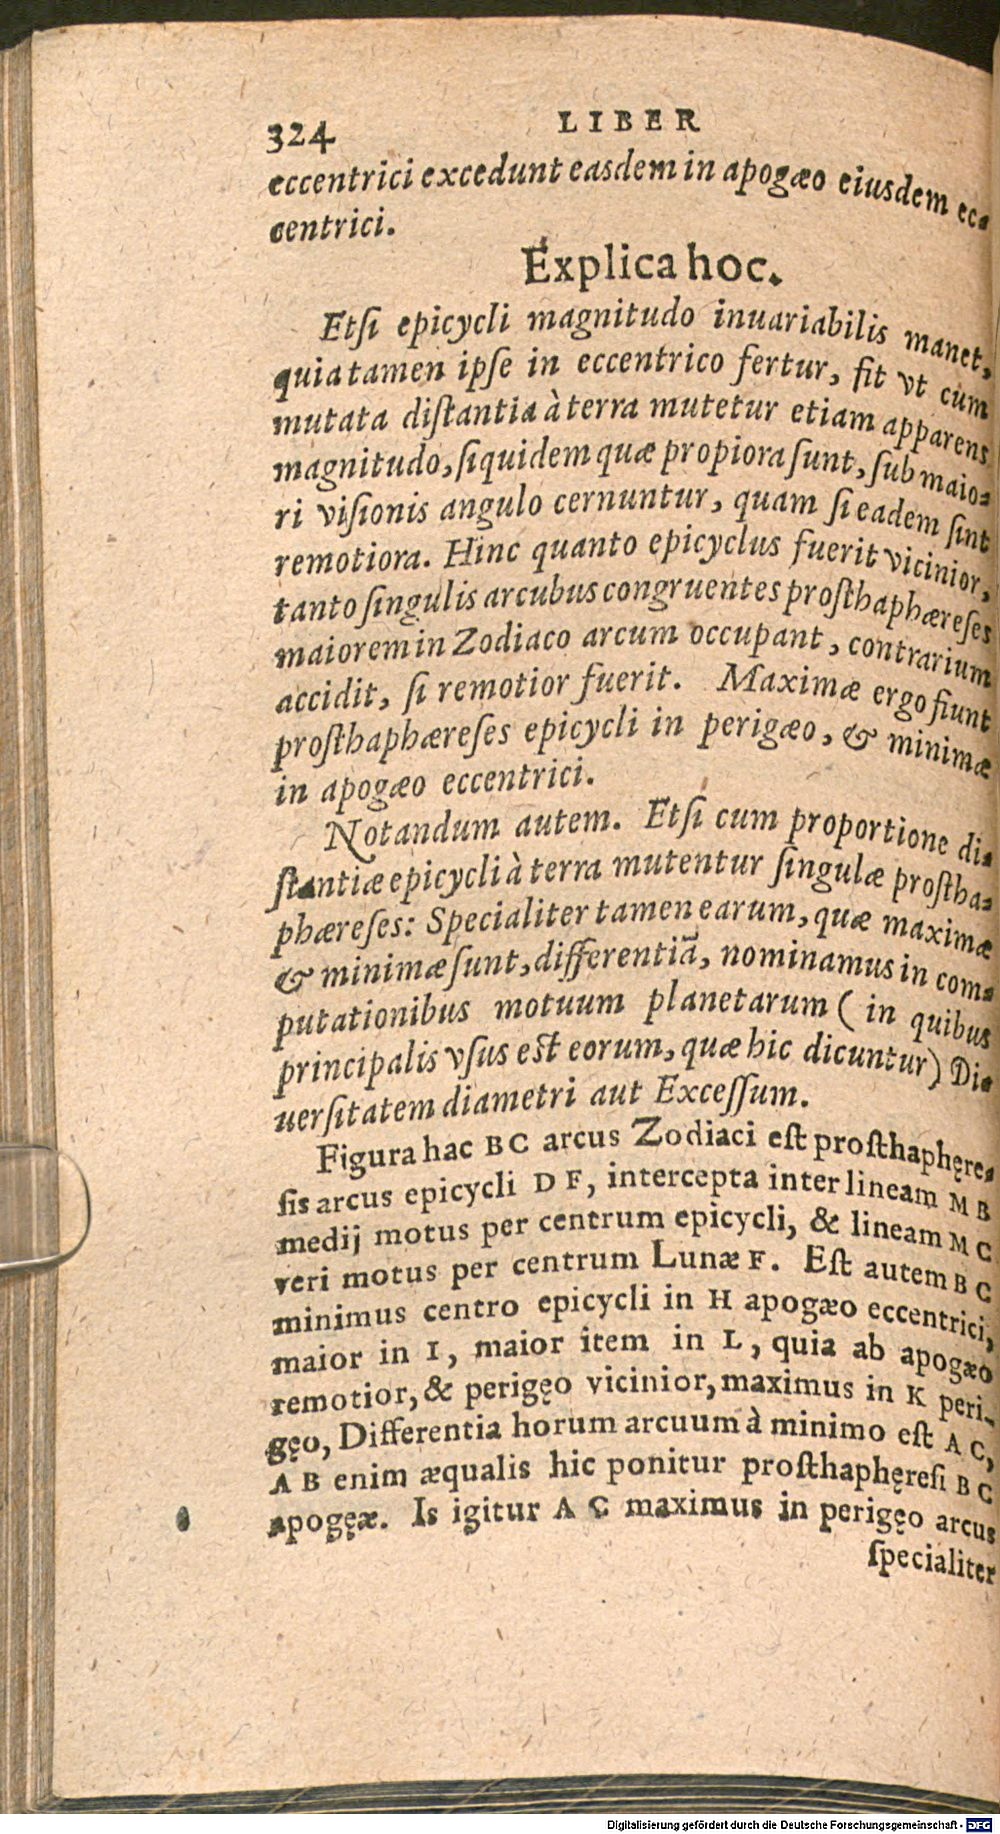 324 LIBER
eccentrici excedunt easdem in apogæo eiusdem ec-
centrici.
Explica hoc.
Etſi epicycli magnitudo inuariabilis manet,
quia tamen ipſe in eccentrico fertur, fit vt cum
mutata diſtantia à terra mutetur etiam apparens
magnitudo, ſiquidem quæ propiora ſunt, ſub maio-
ri viſionis angulo cernuntur, quam ſi eadem ſint
remotiora. Hinc quanto epicyclus fuerit vicinior,
tanto ſingulis arcubus congruentes proſthaphæreſes
maiorem in Zodiaco arcum occupant, contrarium
accidit, ſi remotior fuerit. Maximæ ergo fiunt
proſthaphæreſes epicycli in perigæo, & minimæ
in apogæo eccentrici.
Notandum autem. Etſi cum proportione di-
ſtantiæ epicycli à terra mutentur ſingulæ proſtha-
phæreſes: Specialiter tamen earum, quæ maximæ
& minimæ ſunt, differentiã, nominamus in com-
putationibus motuum planetarum ( in quibus
principalis vſus eſt eorum, quæ hic dicuntur) Di-
uerſitatem diametri aut Exceſſum.
Figura hac BC arcus Zodiaci eſt proſthaphęre-
ſis arcus epicycli DF, intercepta inter lineam MB
medij motus per centrum epicycli, & lineam MC
veri motus per centrum Lunæ F. Eſt autem BC
minimus centro epicycli in H apogæo eccentrici,
maior in I, maior item in L, quia ab apogæo
remotior, & perigęo vicinior, maximus in K peri-
gęo, Differentia horum arcuum à minimo eſt AC,
AB enim æqualis hic ponitur proſthaphęreſi BC
apogęæ. Is igitur AC maximus in perigęo arcus
ſpecialiter
Digitalisierung gefördert durch die Deutsche Forschungsgemeinschaft - DFG